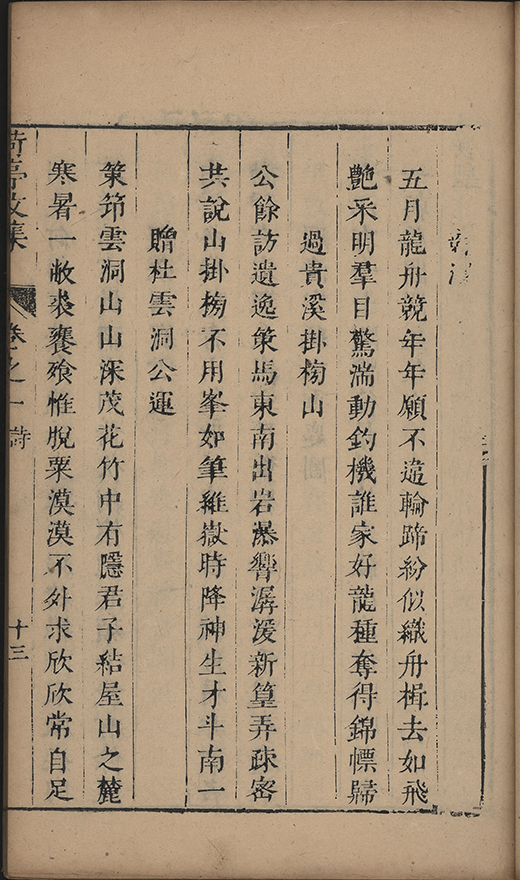 競渡
五月龍舟競年年願不違輪蹄紛似織舟楫去如飛
艷采明羣目驚湍動釣機誰家好龍種奪得錦幖歸
過貴溪掛榜山
公餘訪遺逸策馬東南出岩瀑響潺湲新篁弄疎密
共說山掛榜不用峯如筆維嶽時降神生才斗南一
贈杜雲洞公運
策笻雲洞山山深茂花竹中有隱君子結屋山之麓
寒暑一敝裘饔飧惟脫粟漠漠不外求欣欣常自足
荷亭文集 卷之一 詩 十三